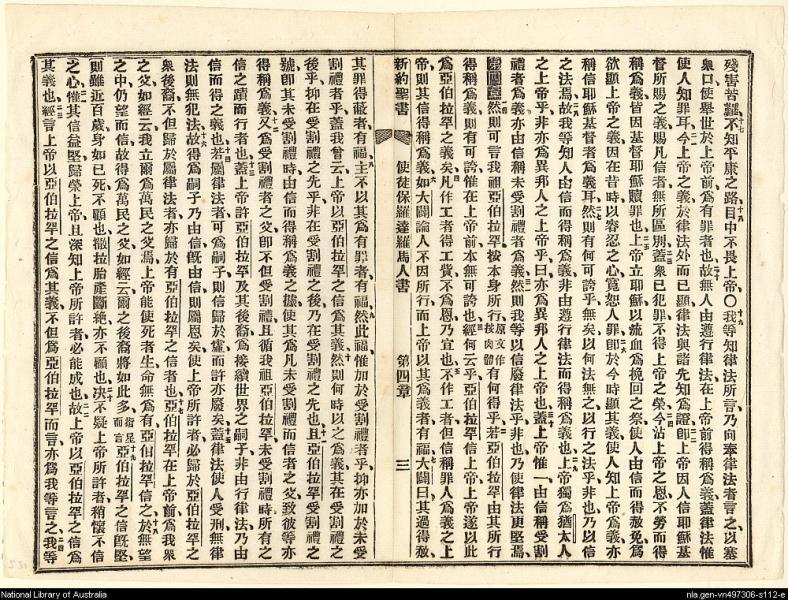 殘害苦難不知平康之路目中不畏上帝〇我等知律法所言乃向奉律法者言之以塞
衆口使舉世於上帝前爲有罪者也故無人由遵行律法在上帝前得稱爲義蓋律法惟
使人知罪耳今上帝之義於律法外而已顯律法與諸先知爲證卽上帝因人信耶穌基
督所賜之義賜凡信者無所區別蓋衆已犯罪不得上帝之榮今沾上帝之恩不勞而得
稱爲義皆因基督耶穌贖罪也上帝立耶穌以流血爲挽回之祭使人由信而得赦免爲
欲顯上帝之義因在昔時以容忍之心寬恕人罪卽於今時顯其義使人知上帝爲義亦
稱信耶穌基督者爲義耳然則有何可誇乎無矣以何法無之以行之法乎非也乃以信
之法焉故我等知人由信而得稱爲義非由遵行律法而得稱爲義也上帝獨爲猶太人
之上帝乎非亦爲異邦人之上帝乎曰亦爲異邦人之上帝也蓋上帝惟一由信稱受割
禮者爲義亦由信稱未受割禮者爲義然則我等以信廢律法乎非也乃使律法更堅焉
然則可言我祖亞伯拉罕按本身所行原文作按肉體有何得乎若亞伯拉罕由其所行
得稱爲義則有可誇惟在上帝前本無可誇也經何云乎亞伯拉罕信上帝上帝遂以此
爲亞伯拉罕之義矣凡作工者得工費不爲恩乃宜也不作工者但信稱罪人爲義之上
帝則其信得稱爲義如大闢論人不因所行而上帝以其爲義者有福大闢曰其過得赦
新約聖書 使徒保羅達羅馬人書 第四章 三
其罪得蔽者有福主不以其爲有罪者有福然此福惟加於受割禮者乎抑亦加於未受
割禮者乎蓋我曾云上帝以亞伯拉罕之信爲其義然則何時以之爲義其在受割禮之
後乎抑在受割禮之先乎非在受割禮之後乃在受割禮之先也且亞伯拉罕受割禮之
號卽其未受割禮時由信而得稱爲義之據使其爲凡未受割禮而信者之父致彼等亦
得稱爲義又爲受割禮者之父卽不但受割禮且循我祖亞伯拉罕未受割禮時所有之
信之蹟而行者也蓋上帝許亞伯拉罕及其後裔爲接續世界之嗣子非由行律法乃由
信而得之義也若屬律法者可爲嗣子則信歸於虛而許亦廢矣蓋律法使人受刑無律
法則無犯法故得爲嗣子乃由信旣由信則屬恩矣使上帝所許者必歸於亞伯拉罕之
衆後裔不但歸於屬律法者亦歸於有亞伯拉罕之信者也亞伯拉罕在上帝前爲我衆
之父如經云我立爾爲萬民之父焉上帝能使死者生命無爲有亞伯拉罕信之於無望
之中仍望而信故得爲萬民之父如經云爾之後裔將如此多指星而言亞伯拉罕之信旣堅
則雖近百歲身如已死不顧也撒拉胎產斷絶亦不顧也決不疑上帝所許者稍懷不信
之心惟其信益堅歸榮上帝且深知上帝所許者必能成也故上帝以亞伯拉罕之信爲
其義也經言上帝以亞伯拉罕之信爲其義不但爲亞伯拉罕而言亦爲我等言之我等
National Library of Australia
nla.gen-vn497306-s112-e